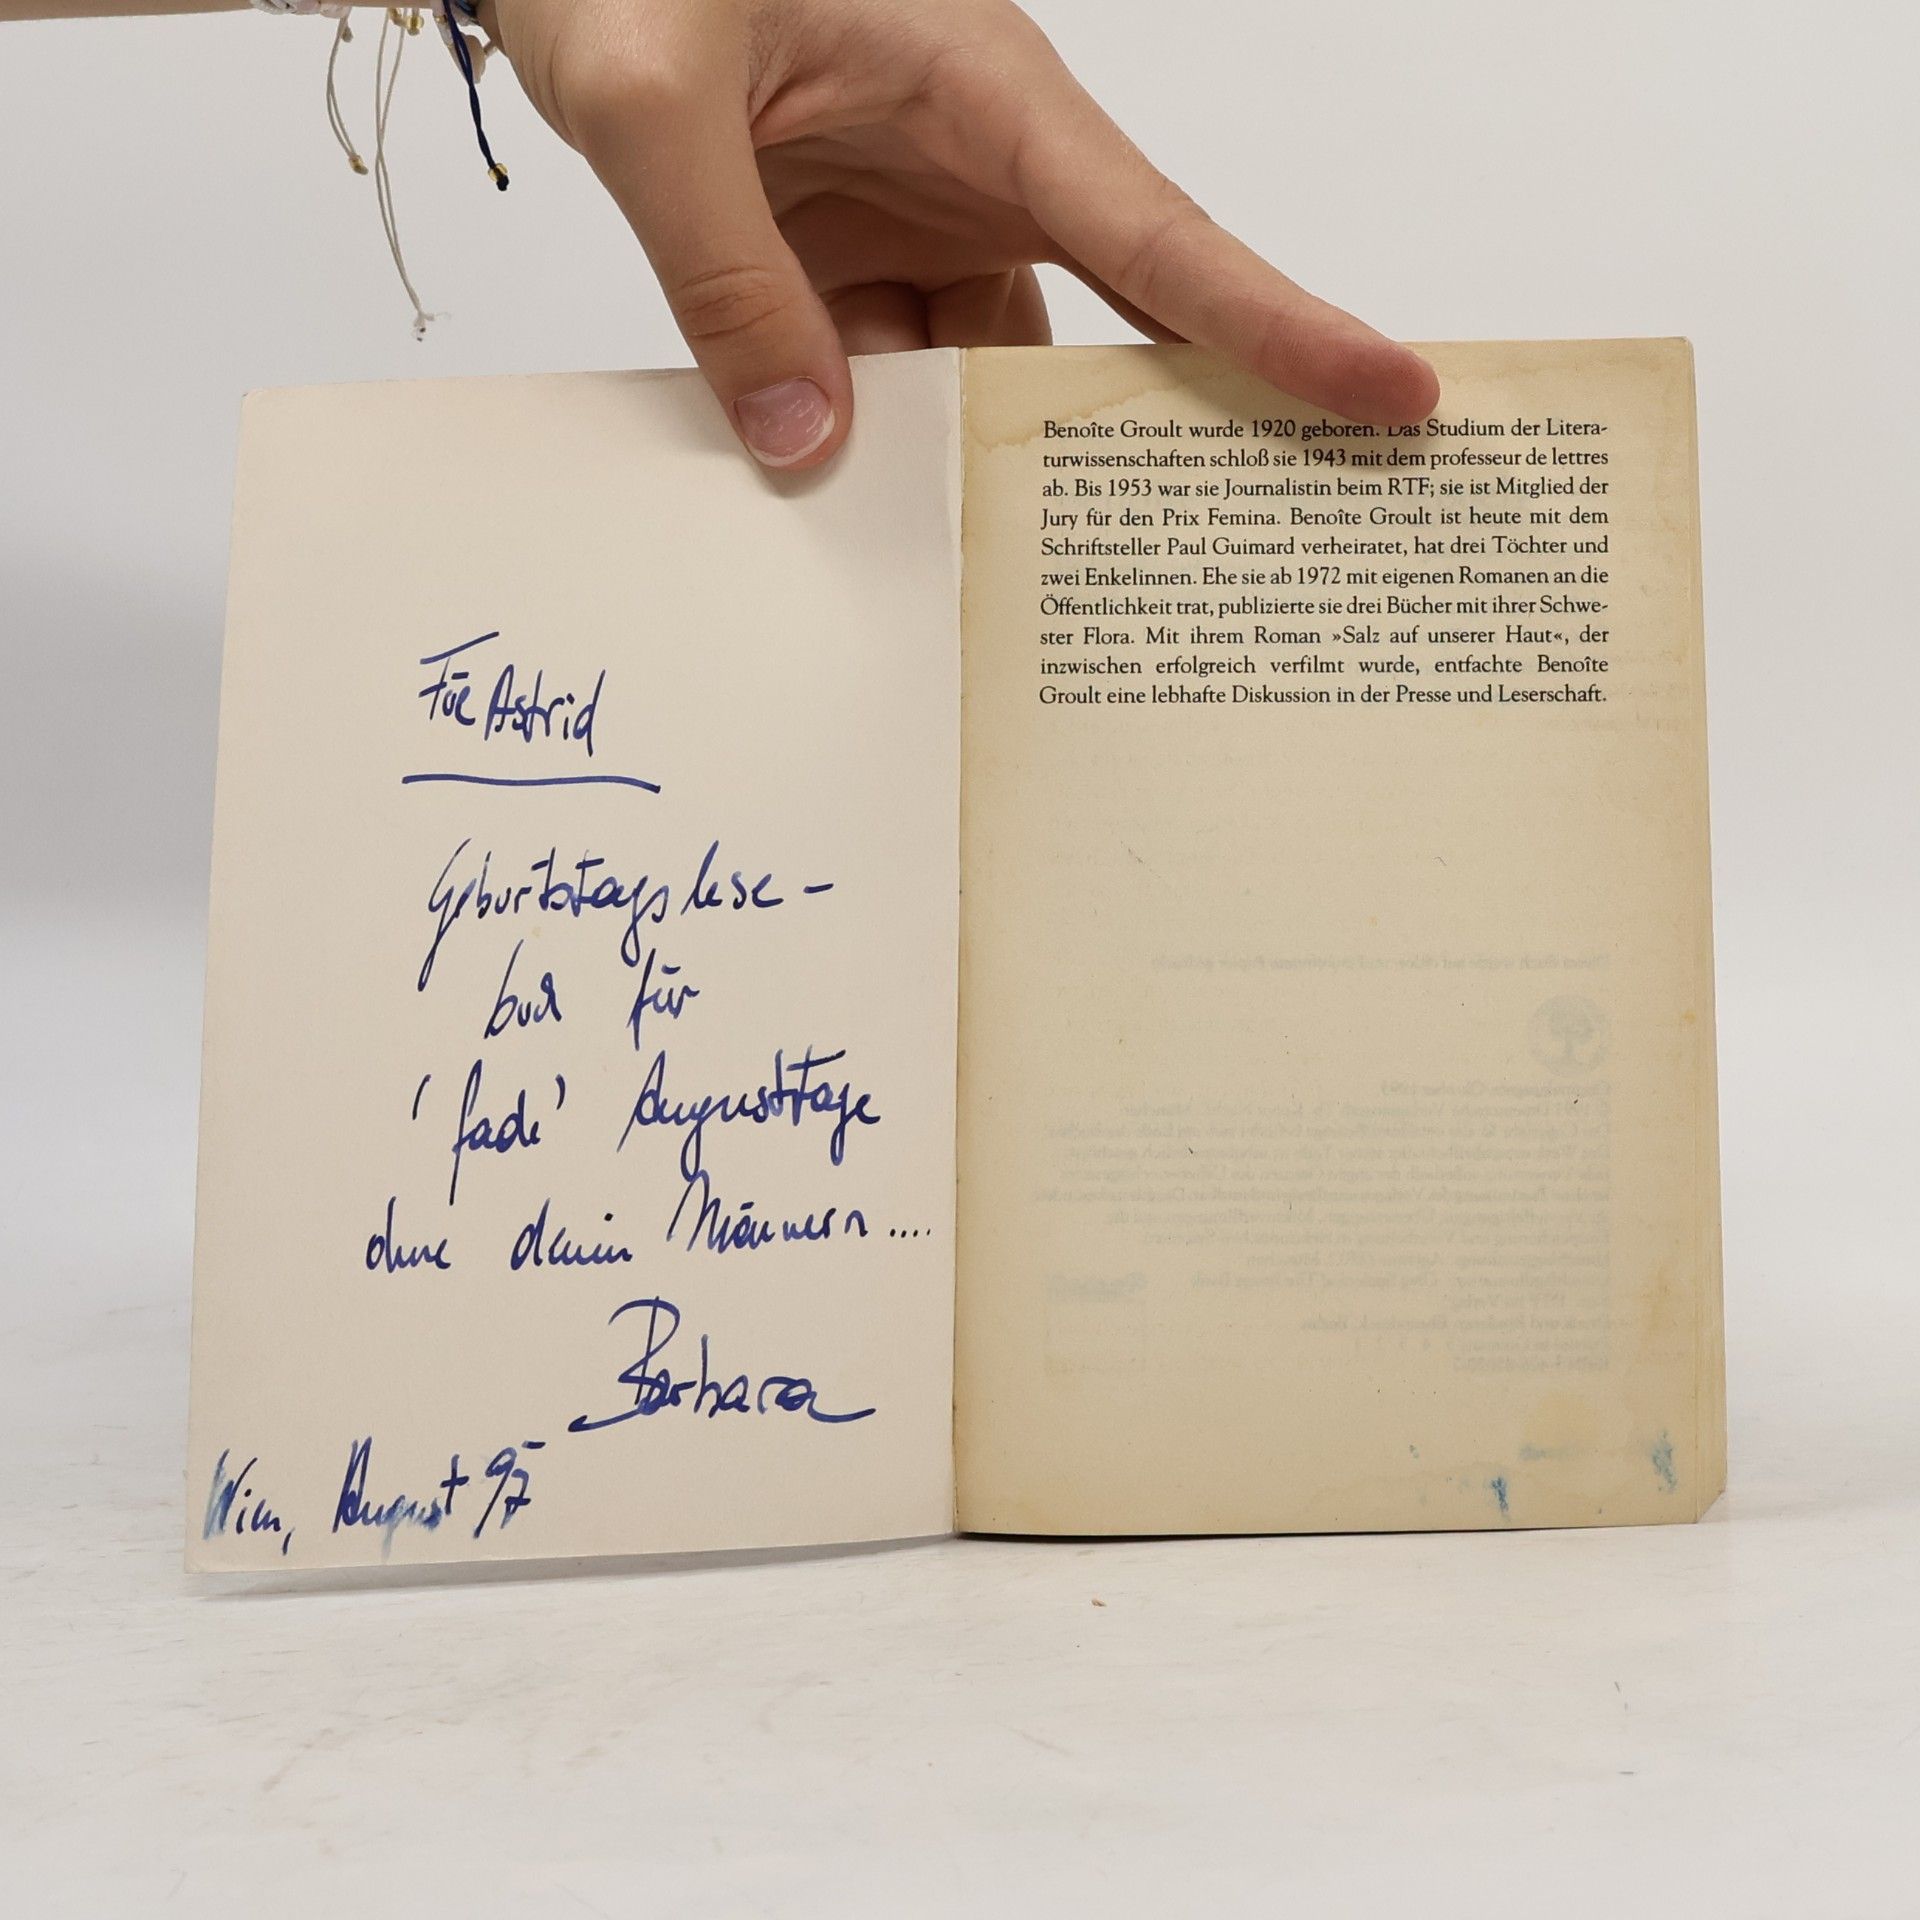 Für Astrid
Geburtstagslese-
buch für
'fade' Augusttage
ohne deinen Männern....
Barbara
Wien, August 97
Benoîte Groult wurde 1920 geboren. Das Studium der Litera-
turwissenschaften schloß sie 1943 mit dem professeur de lettres
ab. Bis 1953 war sie Journalistin beim RTF; sie ist Mitglied der
Jury für den Prix Femina. Benoîte Groult ist heute mit dem
Schriftsteller Paul Guimard verheiratet, hat drei Töchter und
zwei Enkelinnen. Ehe sie ab 1972 mit eigenen Romanen an die
Öffentlichkeit trat, publizierte sie drei Bücher mit ihrer Schwe-
ster Flora. Mit ihrem Roman »Salz auf unserer Haut«, der
inzwischen erfolgreich verfilmt wurde, entfachte Benoîte
Groult eine lebhafte Diskussion in der Presse und Leserschaft.